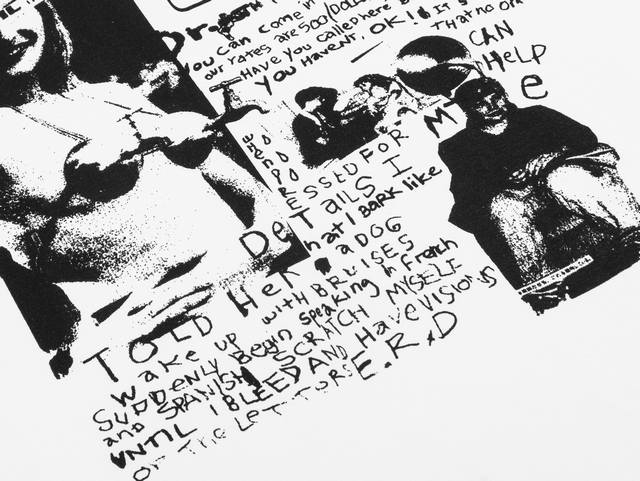 you can come in
our rates are 500/Dollar
Have you called here B
you haven't, OK! It s
That no on
CAN
HELP
M e
when PRESSED FOR
DeTails I
TOLD HeR that I BARK like
a DOG
wake up with BRUISES
SUDDENLY BEGIN speaking in French
and SPANISH SCRATCH MYSELF
UNTIL I BLEED AND HAVE VISIONS
OF THE LETTERS E.R.D